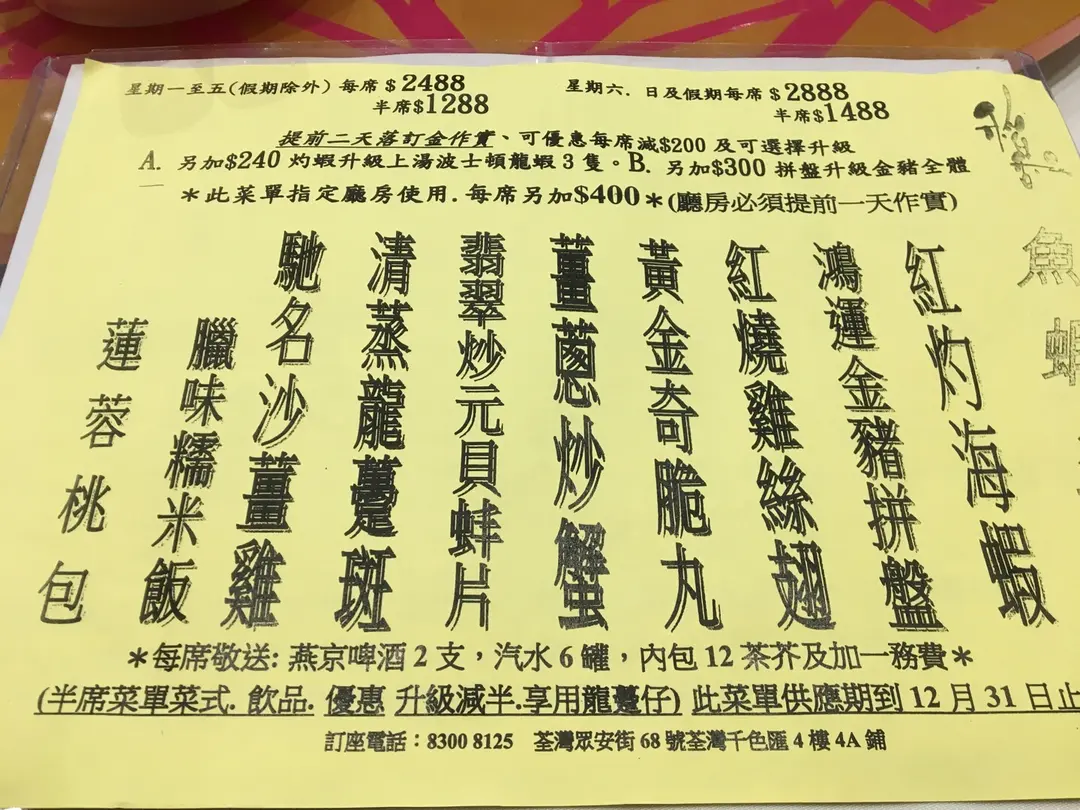 星期一至五(假期除外) 每席 $ 2488
半席$1288
星期六. 日及假期每席 $ 2888
半席$1488
提前二天落訂金作實、可優惠每席減$200 及可選擇升級
A. 另加$240 灼蝦升級上湯波士頓龍蝦 3 隻。B. 另加$300 拼盤升級金豬全體
＊此菜單指定廳房使用. 每席另加$400＊(廳房必須提前一天作實)
魚
蝦
紅灼海蝦
鴻運金豬拼盤
紅燒雞絲翅
黃金奇脆丸
薑蔥炒蟹
翡翠炒元貝蚌片
清蒸龍躉斑
馳名沙薑雞
臘味糯米飯
蓮蓉桃包
＊每席敬送: 燕京啤酒 2 支，汽水 6 罐，內包 12 茶芥及加一務費＊
(半席菜單菜式. 飲品. 優惠 升級減半.享用龍躉仔) 此菜單供應期到 12 月 31 日止
訂座電話：8300 8125 荃灣眾安街 68 號荃灣千色匯 4 樓 4A 鋪